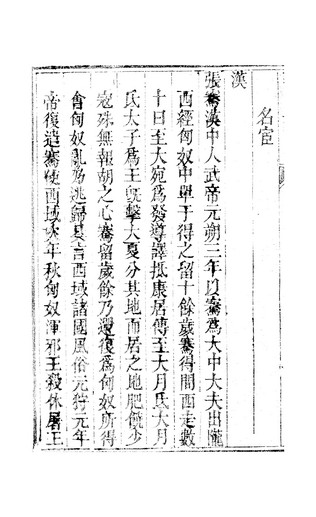 名宦
漢
張騫漢中人武帝元朔三年以騫爲大中大夫出隴
西經匈奴中單于得之留十餘歲騫得間西走數
十日至大宛爲發導譯抵康居傳至大月氏大月
氏太子爲王旣擊大夏分其地而居之地肥饒少
寇殊無報胡之心騫留歲餘乃還復爲匈奴所得
會匈奴亂乃逃歸具言西域諸國風俗元狩元年
帝復遣騫使西域次年秋匈奴渾邪王殺休屠王